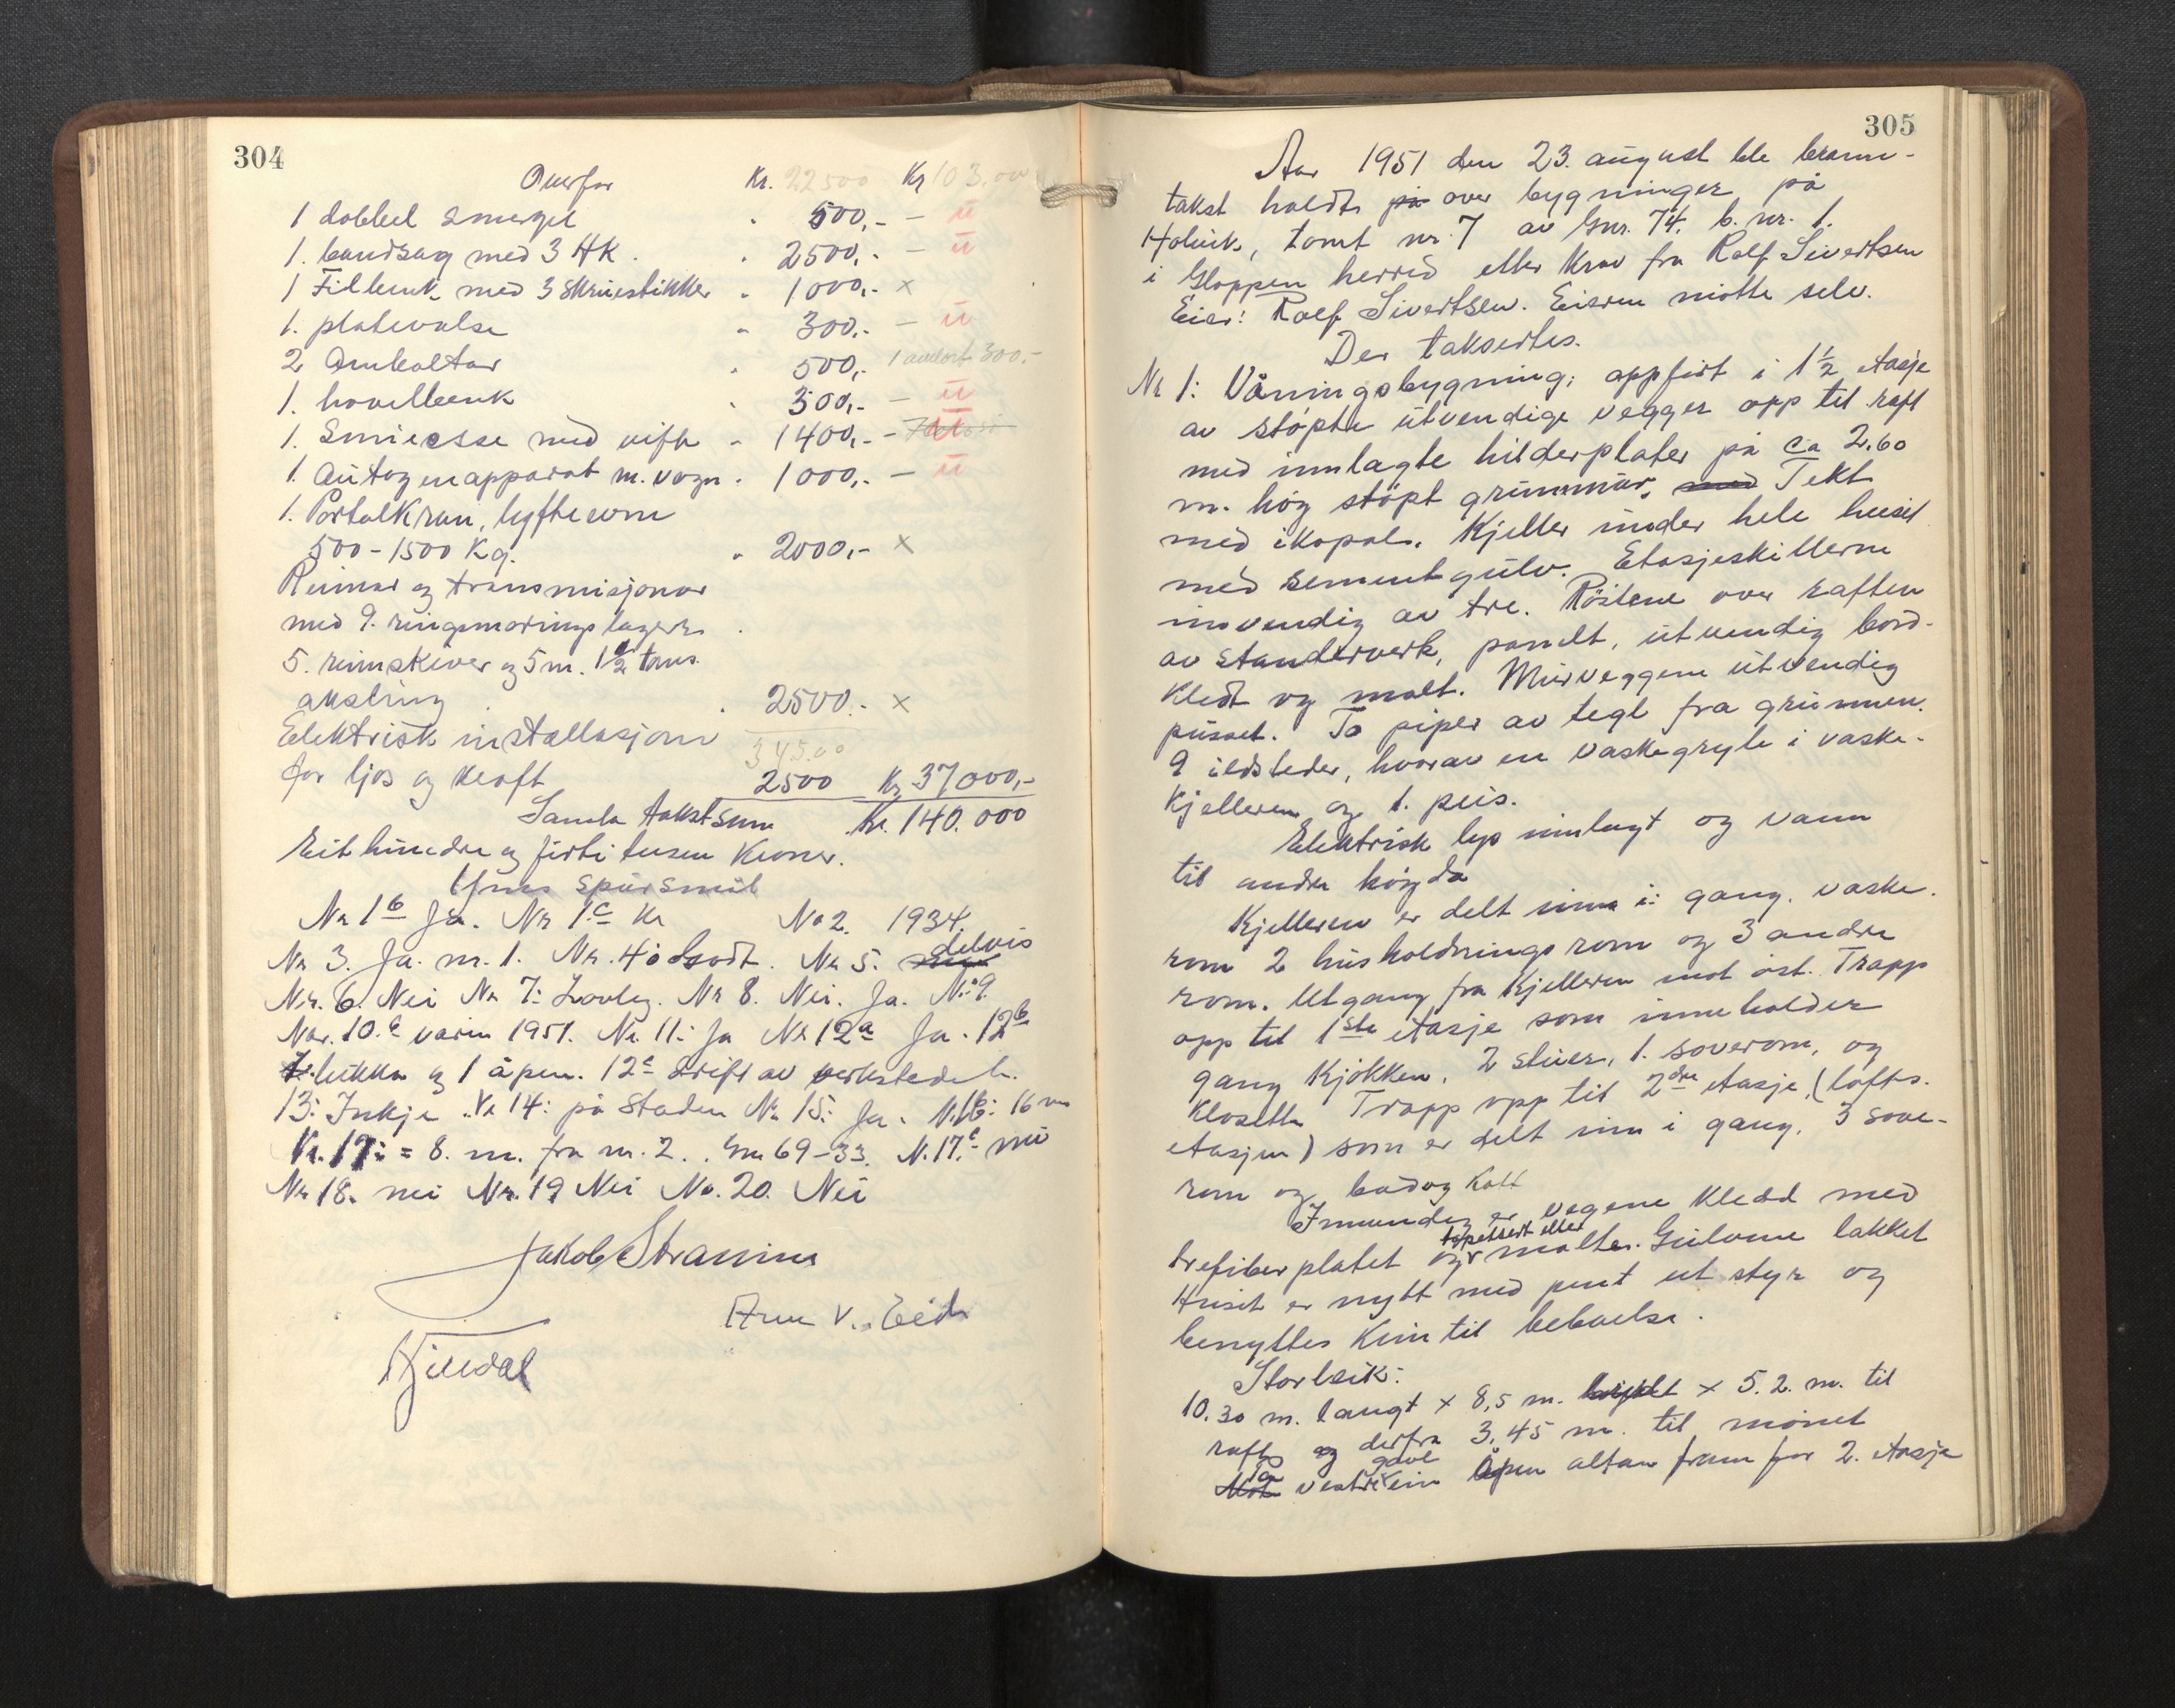 304
Overfør Kr. 22500 Kr 103.000
1 dobbel smergel " 500,- – u
1. bandsag med 3 HK. " 2500,- – u
1 Filbenk med 3 skruestikker " 1000,- x
1. platevalse " 300,- – u
2 Amboltar " 500,- 1 300,-
1. hovelbenk " 300,- – u
1. Smiesse med vifte " 1400,- – u
1. Autogenapparat m. vogn " 1000,- – u
1. Portalkran, lyfteevne
500-1500 Kg. " 2000,- x
Reimar og transmisjonar
med 9. ringsmørings lagere
5. reimskiver og 5 m. 1 1/2 toms
aksling " 2500,- x
Elektrisk installasjon 34500
for ljos og kraft 2500 Kr 37000,-
Samla takstsum Kr. 140.000
Eit hundre ogførti tusen Kroner.
Ymse spursmål
Nr 1b Ja. Nr 1c Nr 2. 1934.
Nr 3. Ja. nr. 1. Nr. 4: Godt. Nr 5. delvis
Nr. 6. Nei Nr 7: Lovleg. Nr 8. Nei. Ja. Nr 9.
Nr. 10.c våren 1951. Nr. 11: Ja Nr 12a Ja. 12b
1 lukka og 1 åpen. 12c drift av verkstedet.
13: Inkje Nr 14: på staden Nr 15: Ja. Nr 16: 16 m
Nr. 17: = 8. m. fra nr. 2. Gnr 69-33. N. 17.c nei
Nr 18. nei Nr. 19 Nei No. 20. Nei
Jakob Straume
Arne V. Eide
305
Aar 1951 den 23. august ble brann-
takst holdt på over bygninger på
Holvik, tomt nr. 7 av Gnr. 74. b. nr. 1.
i Gloppen herred etter krav fra Rolf Sivertsen
Eier: Rolf Sivertsen. Eieren møtte selv.
Der taksertes.
Nr 1: Våningsbygning, oppført i 1 1/2 etasje
av støpte utvendige vegger opp til raft
med innlagte hilderplater på ca 2.60
m. høg støpt grunnmur, med Tekt
med ikopal. Kjeller under hele huset
med sementgulv. Etasjeskillerne
innvendig av tre. Röstene over raften
av standerverk, panelt, utvendig bord-
kledt og malt. Murveggene utvendig
pusset. To piper av tegl fra grunnen.
9 ildsteder, hvorav en vaskegryte i vaske-
kjelleren og 1. peis.
Elektrisk lys innlagt og vann
til andre høgda
Kjelleren er delt inn i: gang, vaske-
rom 2 husholdningsrom og 3 andre
rom. Utgang fra kjelleren mot öst. Trapp
opp til 1ste etasje som inneholder
gang kjökken, 2 stuer, 1. soverom, og
klosett Trapp opp til 2dre etasje, (lofts-
etasjen) som er delt inn i gang, 3 sove-
rom og bad og kott
Innvendig er vegene kledd med
trefiberplater og tapetsert eller malte. Gulvene lakket
Huset er nytt med pent utstyr og
benyttes kun til bebœlse.
Storleik:
10.30 m. langt x 8,5 m. breidt x 5.2. m. til
raft og derfra 3,45 m. til mönet
Mot På vestre gavl ein åpen altan fram for 2. etasje